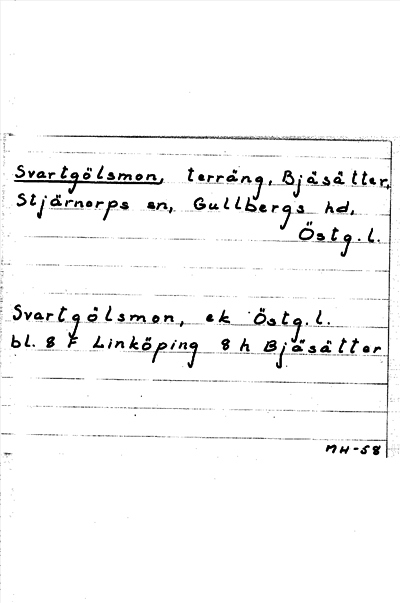 Svartgölsmon, terräng, Bjäsätter,
Stjärnorps sn, Gullbergs hd,
Östg.l.
Svartgölsmon, ek Östg.l.
bl. 8 F Linköping 8 h Bjäsätter
MH-58